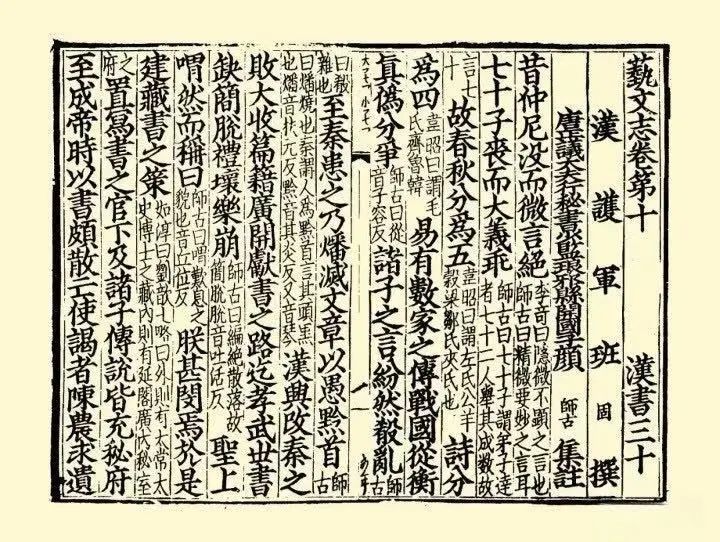 藝文志卷第十 漢書三十
漢護軍班固撰
唐議大夫行秘書監琅邪縣開國子顏師古集註
昔仲尼没而微言絕李奇曰隱微不顯之言也師古曰精微要妙之言耳
七十子喪而大義乖師古曰七十子謂弟子達者七十二人舉其成數故
言七十故春秋分爲五韋昭曰謂左氏公羊穀梁鄒氏夾氏也詩分
爲四韋昭曰謂毛氏齊魯韓易有數家之傳戰國從衡
真僞分爭師古曰從音子容反諸子之言紛然殽亂師古
曰殽雜也至秦患之乃燔滅文章以愚黔首師古
曰燔燒也秦謂人爲黔首言其頭黑也燔音扶元反黔音其炎反又音琴漢興改秦之
敗大收篇籍廣開獻書之路迄孝武世書
缺簡脫禮壞樂崩師古曰編絕散落故簡脫脫音吐活反聖上
喟然而稱曰師古曰喟歎息之貌也音丘位反朕甚閔焉於是
建藏書之策如淳曰劉歆七略曰外則有太常太史博士之藏內則有延閣廣內秘室
之府置寫書之官下及諸子傳說皆充秘府
至成帝時以書頗散亡使謁者陳農求遺